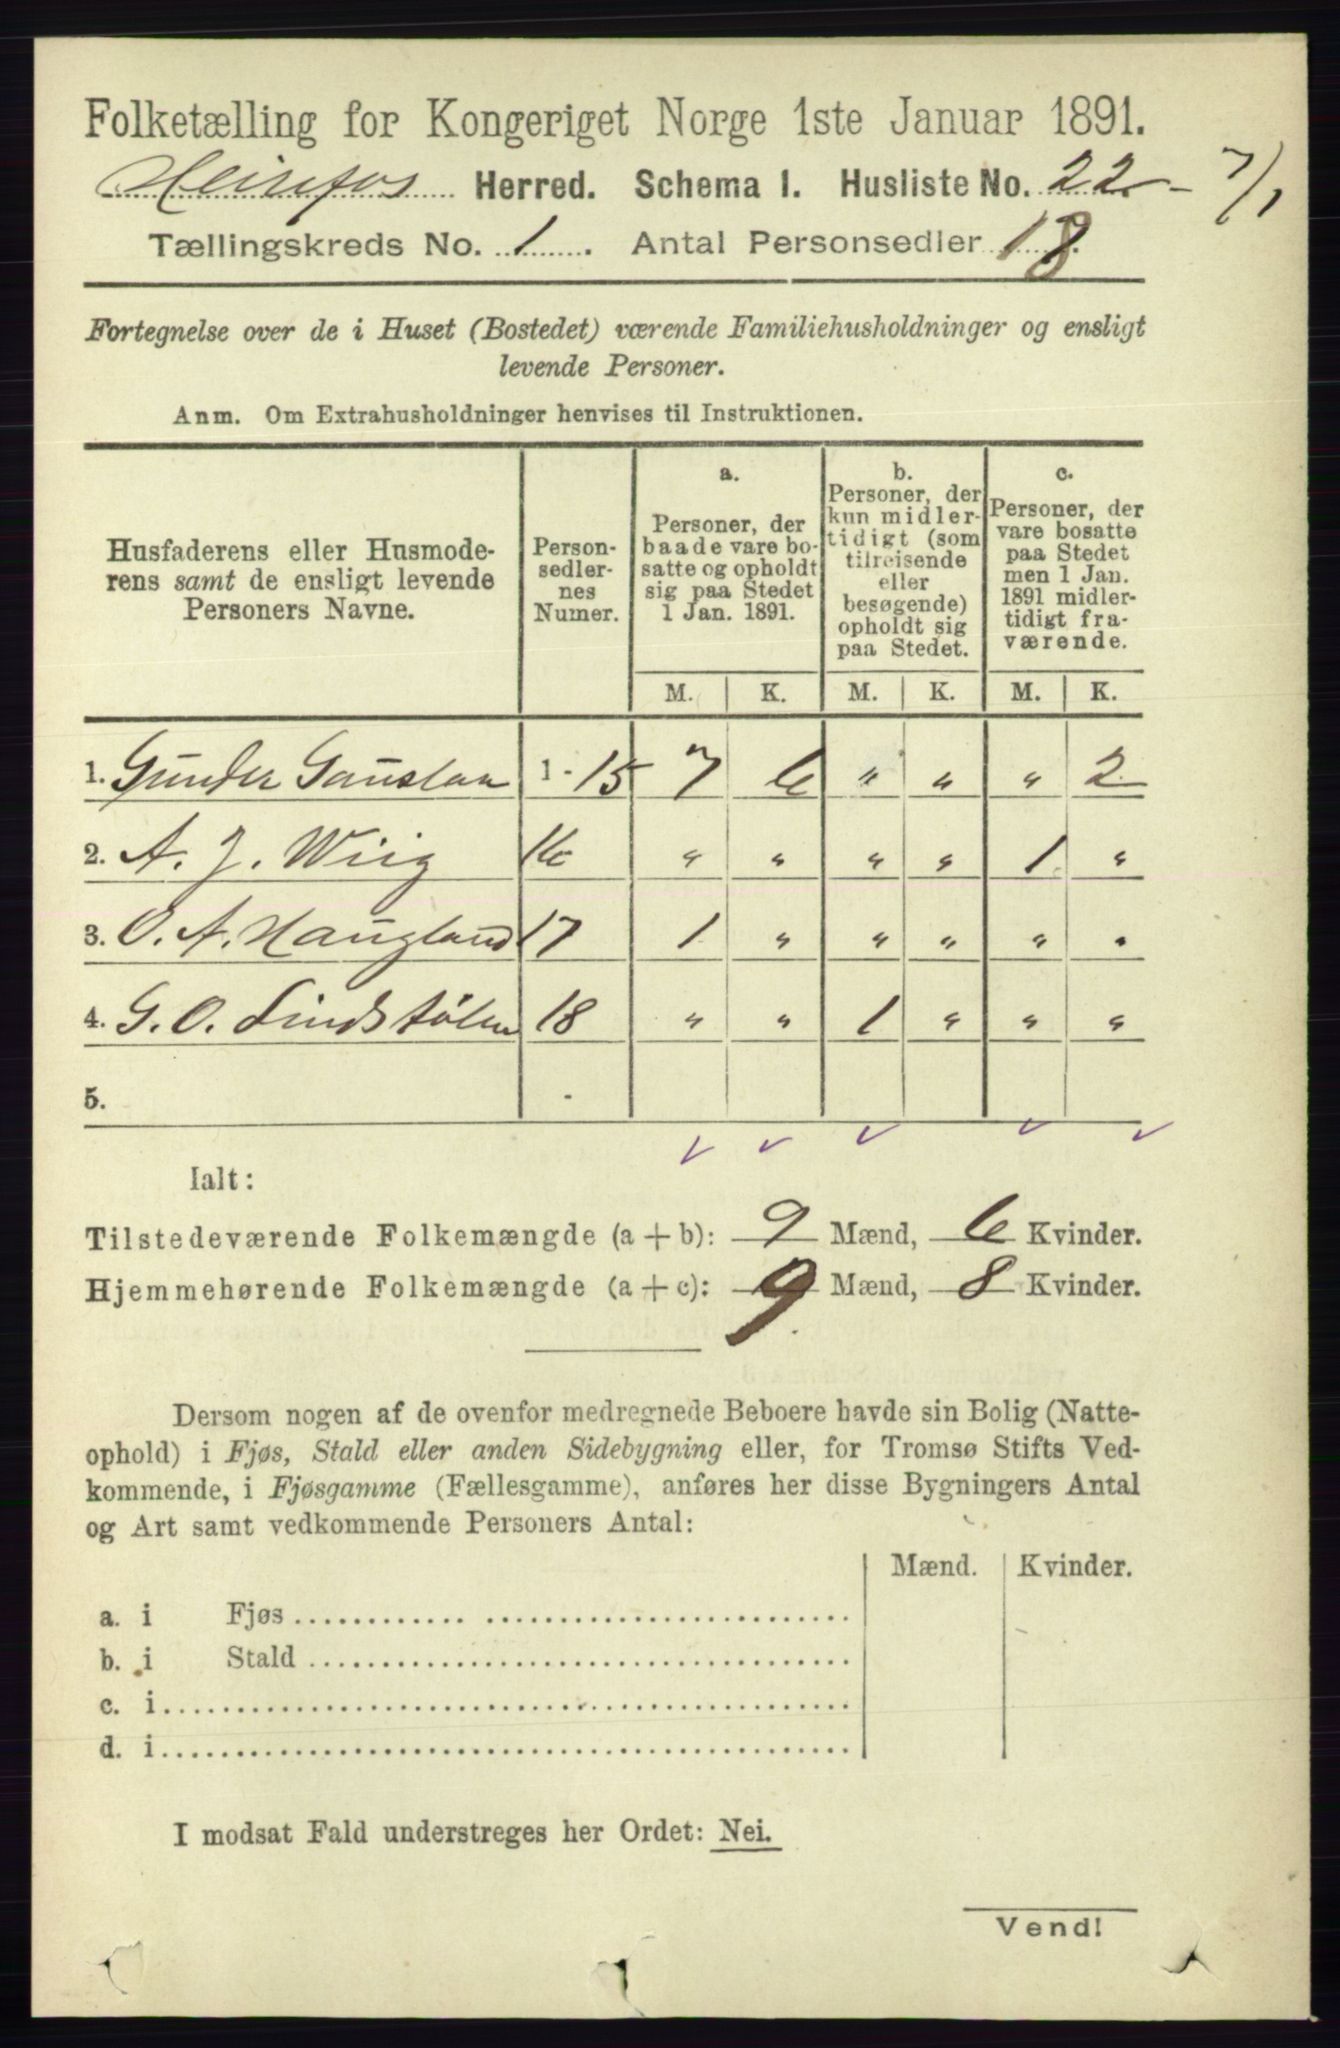 Folketælling for Kongeriget Norge 1ste Januar 1891.
Heirefos Herred. Schema 1. Husliste No. 22 - 7/1
Tællingskreds No. 1. Antal Personsedler 18
Fortegnelse over de i Huset (Bostedet) værende Familiehusholdninger og ensligt
levende Personer.
Anm. Om Extrahusholdninger henvises til Instruktionen.
Husfaderens eller Husmode-
rens samt de ensligt levende
Personers Navne.
Person-
sedler-
nes
Numer.
a.
Personer, der
baade vare bo-
satte og opholdt
sig paa Stedet
1 Jan. 1891.
b.
Personer, der
kun midler-
tidigt (som
tilreisende
eller
besøgende)
opholdt sig
paa Stedet.
c.
Personer, der
vare bosatte
paa Stedet
men 1 Jan.
1891 midler-
tidigt fra-
værende.
M. K. M. K. M. K.
1. Gunder Gauslaa 1 - 15 7 6 " " " 2
2. A. J. Wiig 16 " " " " 1 "
3. O. A. Haugland 17 1 " " " " "
4. G. O. Lindstølen 18 " " 1 " " "
5.
Ialt:
Tilstedeværende Folkemængde (a + b): 9 Mænd, 6 Kvinder.
Hjemmehørende Folkemængde (a + c): 9 Mænd, 8 Kvinder.
Dersom nogen af de ovenfor medregnede Beboere havde sin Bolig (Natte-
ophold) i Fjøs, Stald eller anden Sidebygning eller, for Tromsø Stifts Ved-
kommende, i Fjøsgamme (Fællesgamme), anføres her disse Bygningers Antal
og Art samt vedkommende Personers Antal:
Mænd. Kvinder.
a. i Fjøs
b. i Stald
c. i
d. i
I modsat Fald understreges her Ordet: Nei.
Vend!